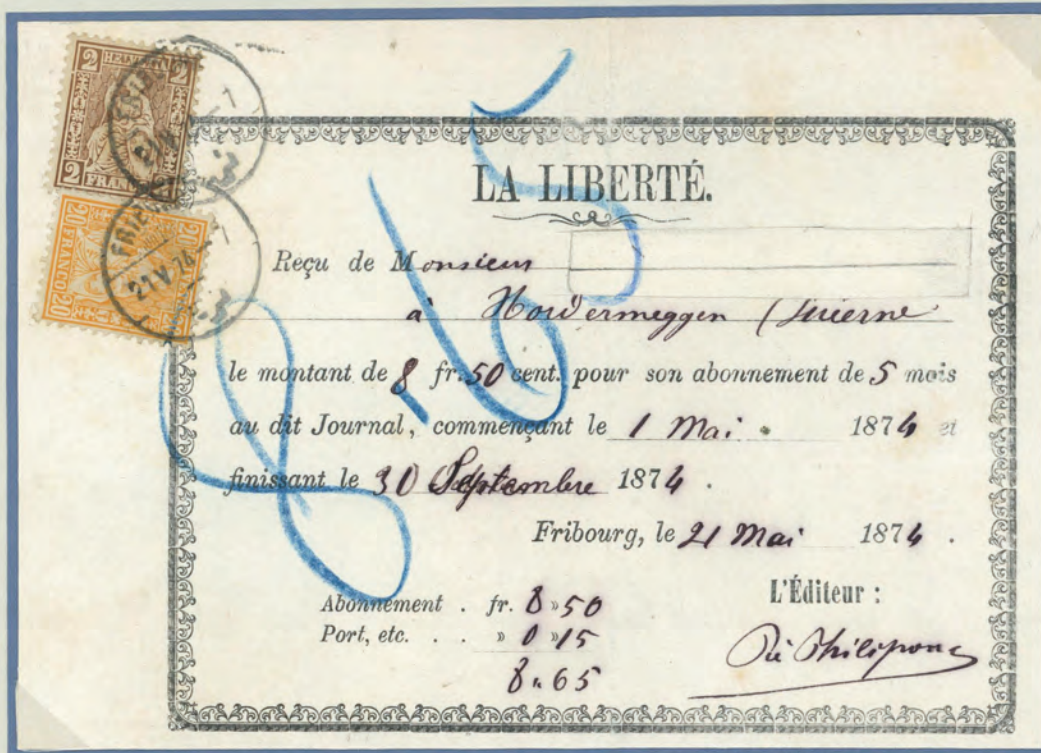 2 HELVETIA 2
2 FRANCS 2
20 FRANCO 20
FRIB
21 V 74 - 7
3
8 65
LA LIBERTÉ.
Reçu de Monsieur
à Hordermeggen (Lucerne
le montant de 8 fr. 50 cent. pour son abonnement de 5 mois
au dit Journal, commençant le 1 Mai 1874 et
finissant le 30 Septembre 1874.
Fribourg, le 21 Mai 1874.
Abonnement . fr. 8 » 50
Port, etc. . . » 0 » 15
8 " 65
L'Éditeur :
Philipona